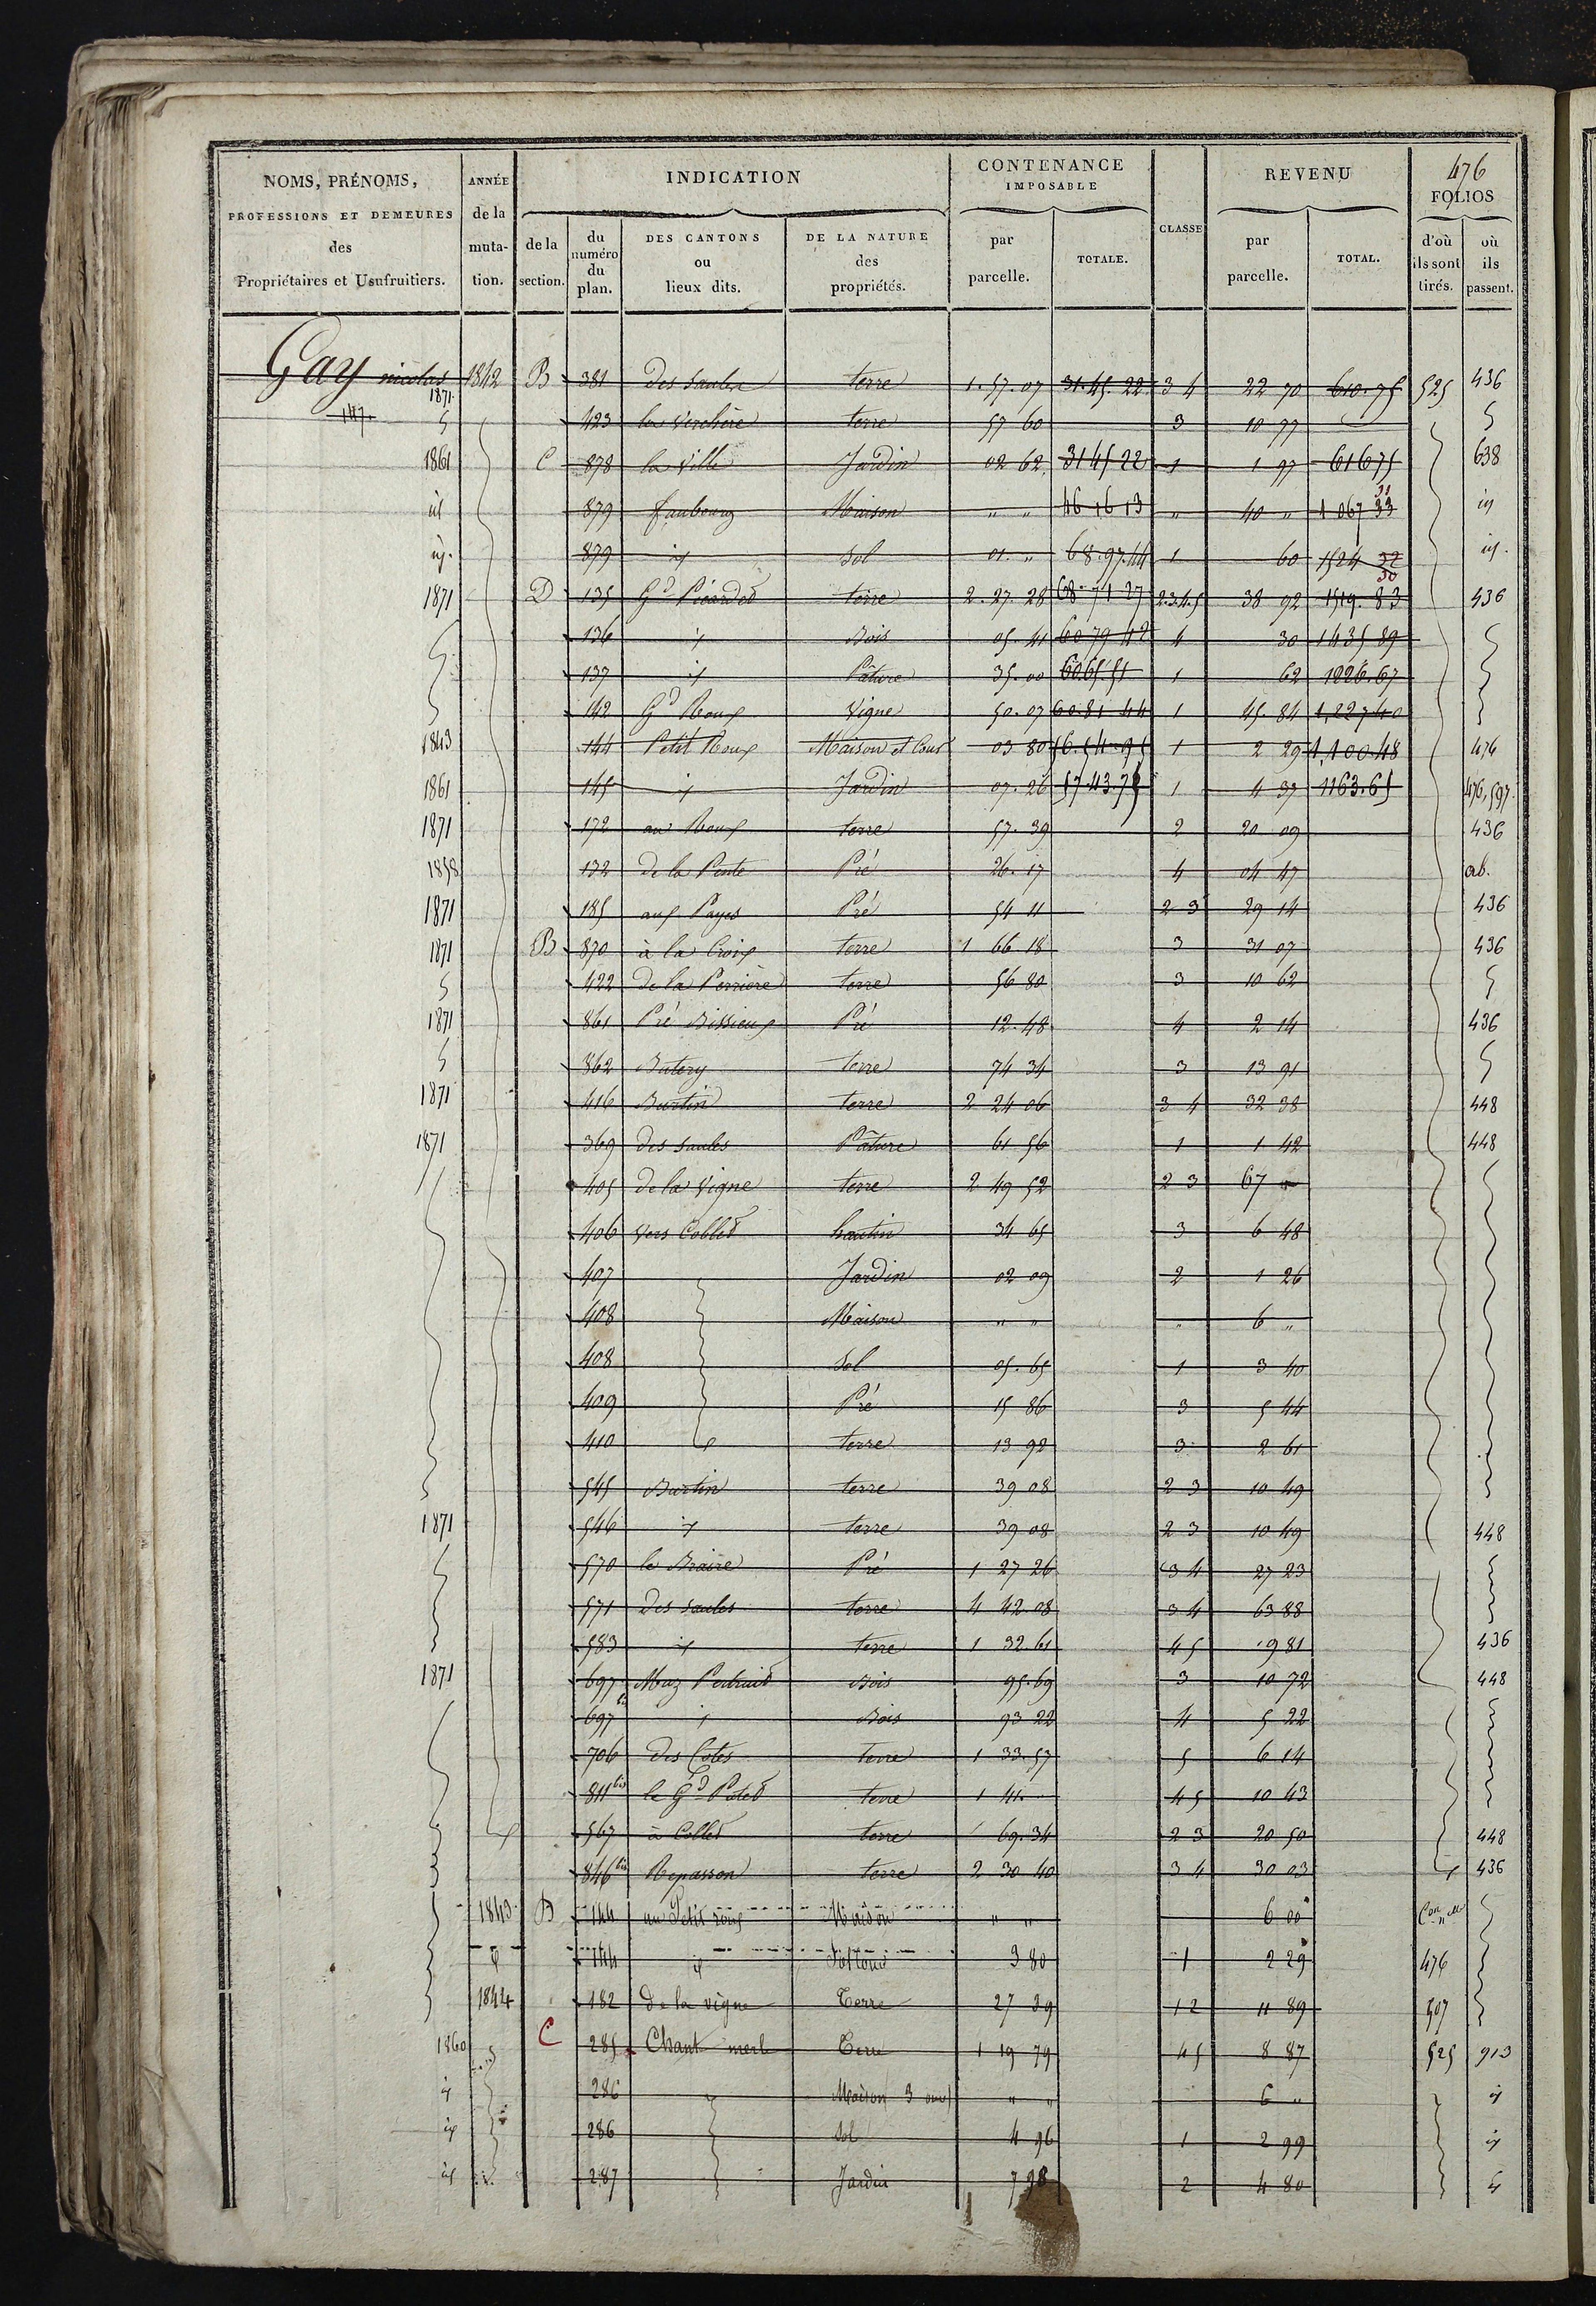 476
NOMS, PRÉNOMS, PROFESSIONS ET DEMEURES des Propriétaires et Usufruitiers.
ANNÉE de la muta-tion.
INDICATION
de la section.
du numéro du plan.
DES CANTONS ou lieux dits.
DE LA NATURE des propriétés.
CONTENANCE IMPOSABLE
par parcelle.
TOTALE.
CLASSE
REVENU
par parcelle.
TOTAL.
FOLIOS
d'où ils sont tirés.
où ils passent.
Gay nicolas 1871 1842 B 381 des saules terre 1. 57. 07 31. 45. 22 3 4 22 70 610. 75 525 436
147. 423 la Verchère terre 57 60 3 10 77
1861 C 878 la ville Jardin 02 62 3145 22 1 1 97 61675 638
id 879 faubourg Maison " " 46 16 13 " 40 " 1 067 33 31 id
id. 879 id Sol 01. " 68. 97. 44 1 60 1524 32 id.
1871 D 135 Gd Picardet terre 2. 27. 28 68. 71 37 2.3.4.5 38 92 1519. 83 30 436
136 id Bois 05. 41 60 79 42 4 30 1435 89
137 id Pâture 35. 00 60.65 51 1 62 1226. 67
142 Gd Roux Vigne 50. 07 60. 81 44 1 45. 84 1,227 40
1843 144 Petit Roux Maison et Cour 03 80 56. 54. 95 1 2 29 1,100. 48 476
1861 145 id Jardin 07. 26 57. 43. 75 1 4 37 1163. 65 476, 597
1871 172 au Roux terre 57. 39 2 20 09 436
1858 132 de la Pente Pré 26. 17 4 04 47 ab.
1871 185 aux Payes Pré 54 11 2 3 29 14 436
1871 B 870 à la Croix terre 1 66 18 3 31 07 436
422 de la Perrière terre 56 80 3 10 62
1871 861 Pré Bissieux Pré 12. 48 4 2 14 436
862 Butery terre 74 34 3 13 91
1871 416 Burtin terre 2 24 06 3 4 32 38 448
1871 369 des saules Pâture 61 56 1 1 42 448
405 de la Vigne terre 2 49 52 2 3 67 "
406 vers Collet hautin 34 65 3 6 48
407 Jardin 02 09 2 1 26
408 Maison " " " 6 "
408 Sol 05. 65 1 3 40
409 Pré 15 86 3 5 44
410 terre 13 92 3 2 61
545 Burtin terre 39 08 2 3 10 49
1871 546 id terre 39 08 2 3 10 49 448
570 le Braire Pré 1 27 26 3 4 27 23
571 des saules terre 4 42. 08 3 4 63 88
583 id terre 1 32. 61 4 5 9 81 436
1871 697 Maz Bois 95. 69 3 10 72 448
697 bis id Bois 93 22 4 5 22
706 des Cotes terre 1 33. 57 5 6 14
811 bis le Gd terre 1 41. 4 5 10 43
567 à Collet terre 69. 34 2 3 20 50 448
846 bis Repasson terre 2 30 40 3 4 30 03 436
1843 D 144 au Petit roux Maison " " 6 00 Con n elle
id 144 id Sol et Cour 3 80 1 2 29 476
1844 182 de la vigne Terre 27 39 1 2 11 89 507
1860 C 285 Chant merle Terre 1 19 79 4 5 8 87 525 913
id 286 Maison 3 ouv " " 6 " id
id 286 Sol 4 96 1 2 99 id
id 287 Jardin 7 98 2 4 80 id